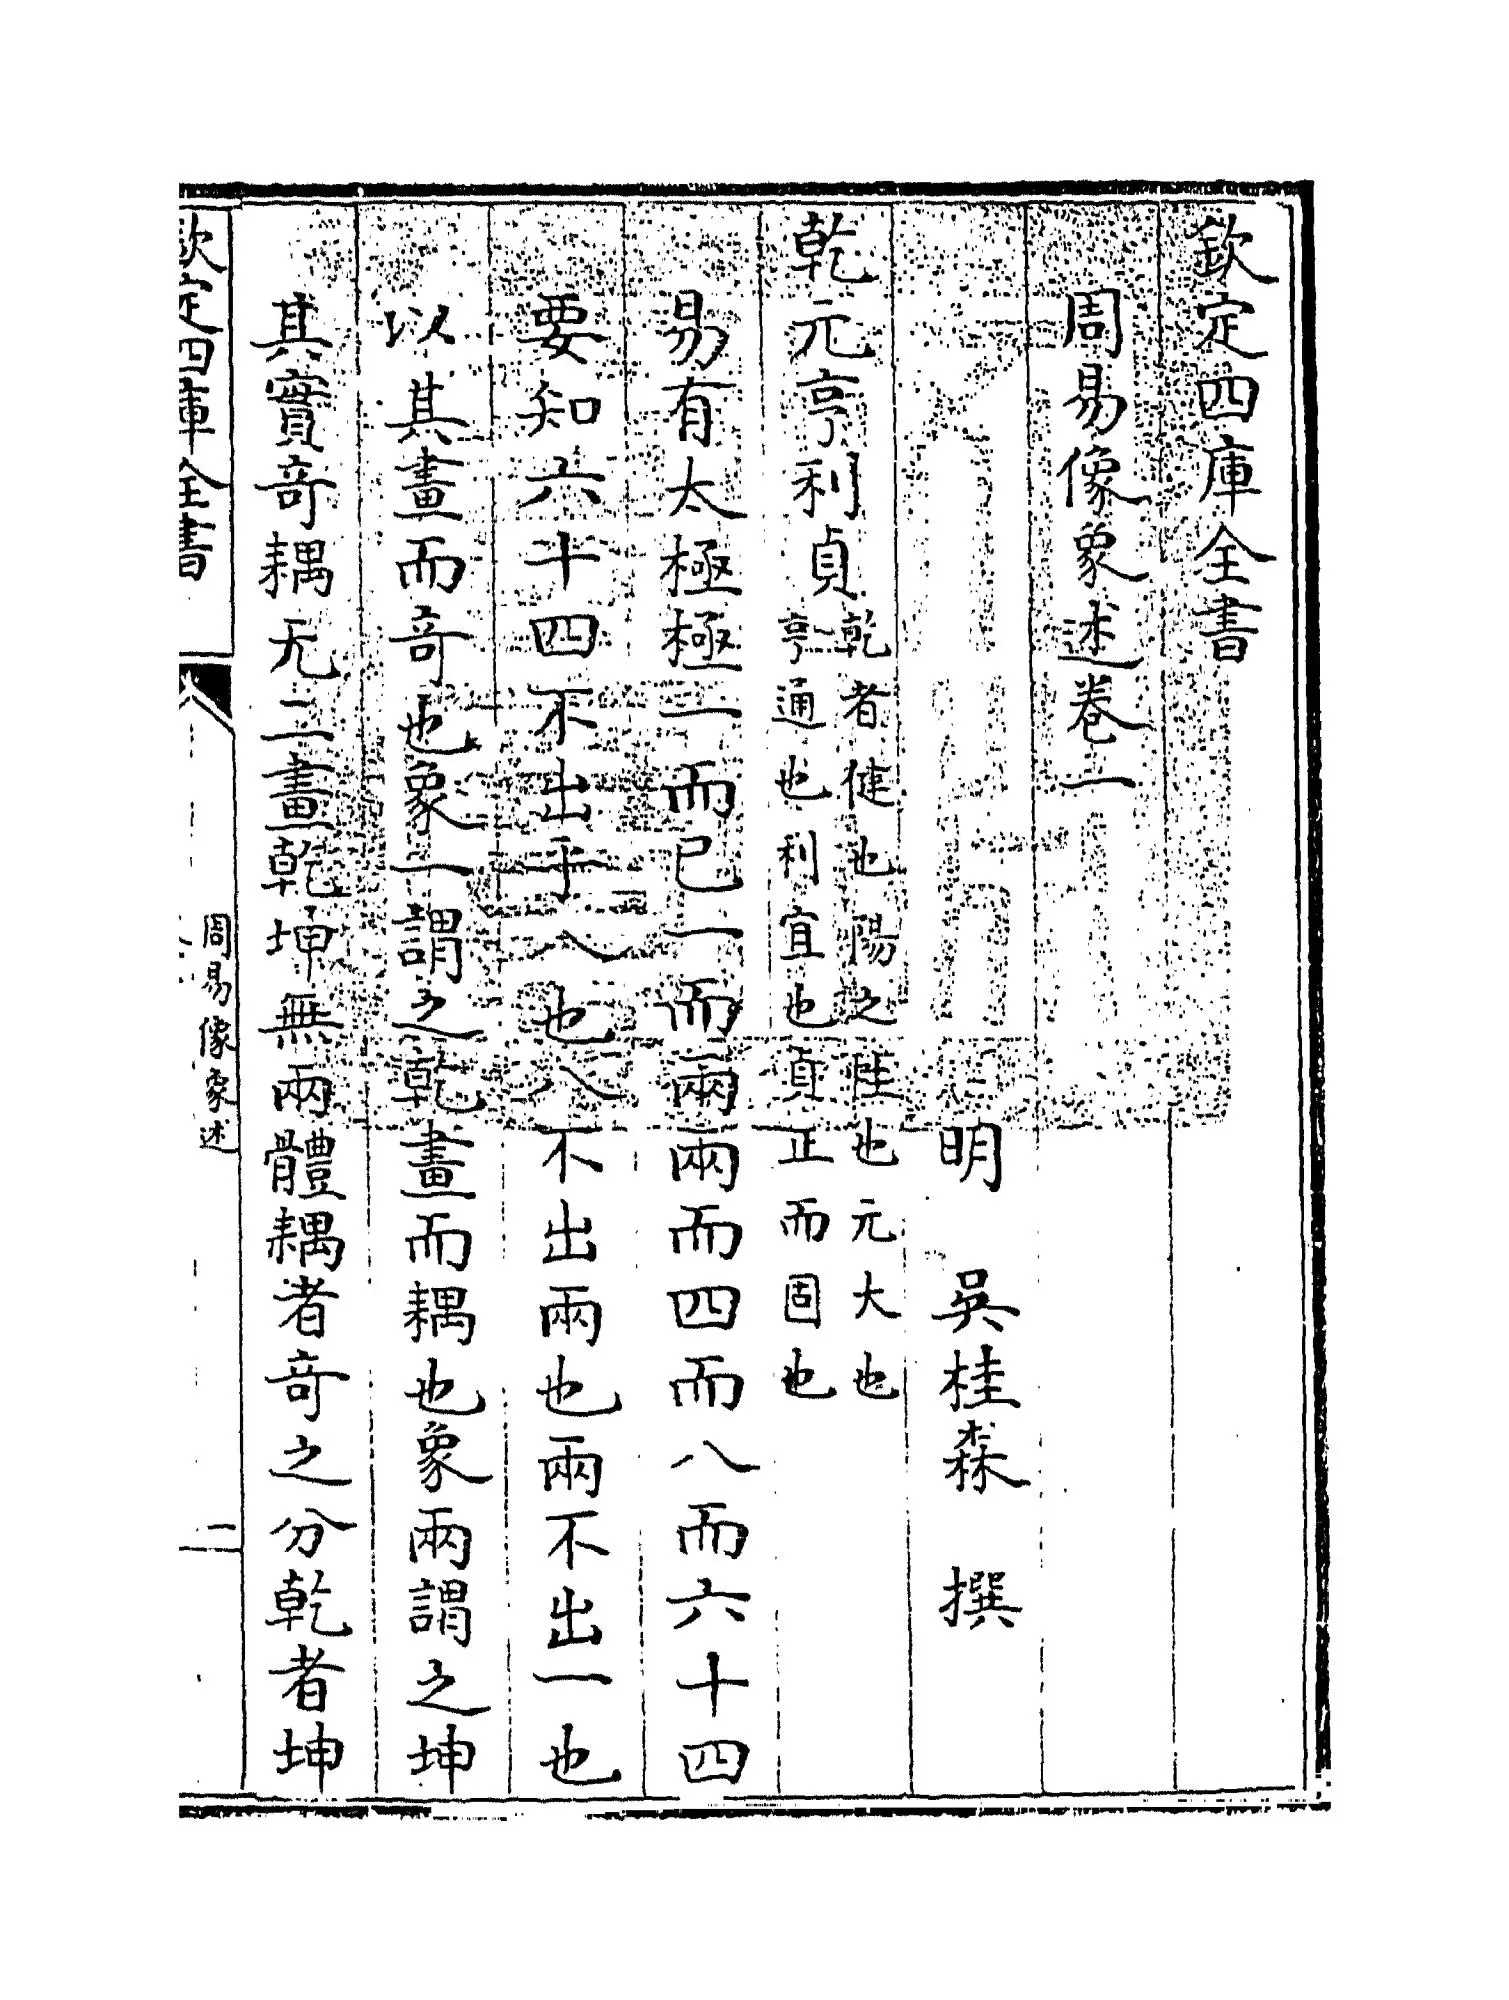 欽定四庫全書
周易像象述卷一
明 吳桂森 撰
乾元亨利貞乾者健也陽之性也元大也
亨通也利宜也貞正而固也
易有太極極一而已一而兩兩而四而八而六十四
要知六十四不出乎八也八不出兩也兩不出一也
以其畫而竒也象一謂之乾畫而耦也象兩謂之坤
其實竒耦无二畫乾坤無兩體耦者竒之分乾者坤
欽定四庫全書
周易像象述
一